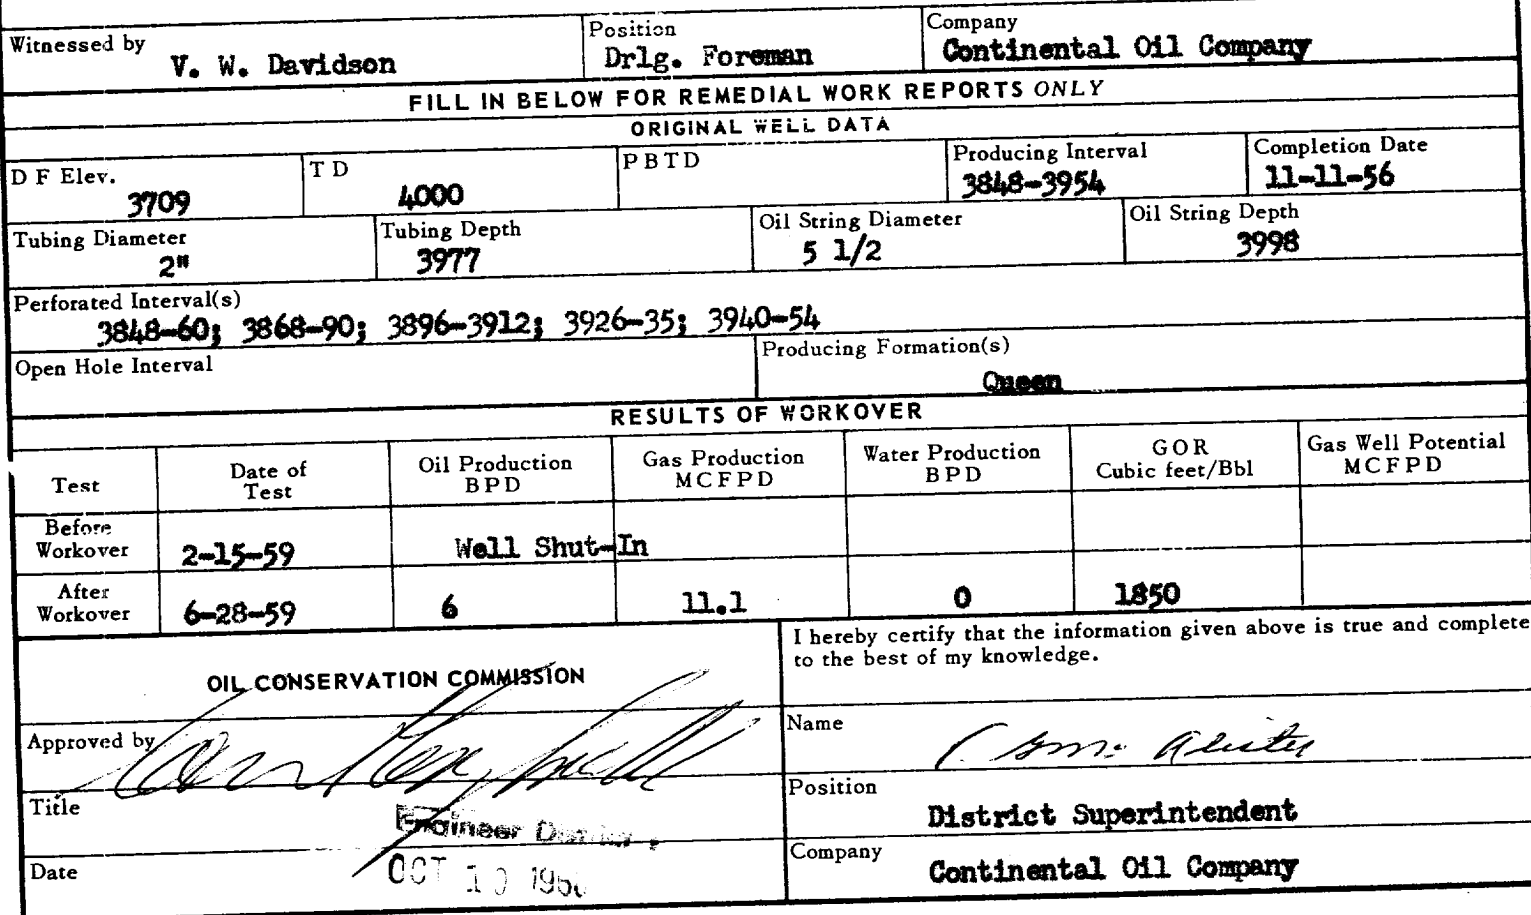 Witnessed by V. W. Davidson Position Drlg. Foreman Company Continental Oil Company
FILL IN BELOW FOR REMEDIAL WORK REPORTS ONLY
ORIGINAL WELL DATA
D F Elev. 3709 T D 4000 P B T D Producing Interval 3848-3954 Completion Date 11-11-56
Tubing Diameter 2" Tubing Depth 3977 Oil String Diameter 5 1/2 Oil String Depth 3998
Perforated Interval(s)
3848-60; 3868-90; 3896-3912; 3926-35; 3940-54
Open Hole Interval Producing Formation(s) Queen
RESULTS OF WORKOVER
Test Date of Test Oil Production BPD Gas Production MCFPD Water Production BPD GOR Cubic feet/Bbl Gas Well Potential MCFPD
Before Workover 2-15-59 Well Shut-In
After Workover 6-28-59 6 11.1 0 1850
I hereby certify that the information given above is true and complete
to the best of my knowledge.
OIL CONSERVATION COMMISSION
Approved by
Name
Title Engineer
Position District Superintendent
Date OCT 10
Company Continental Oil Company